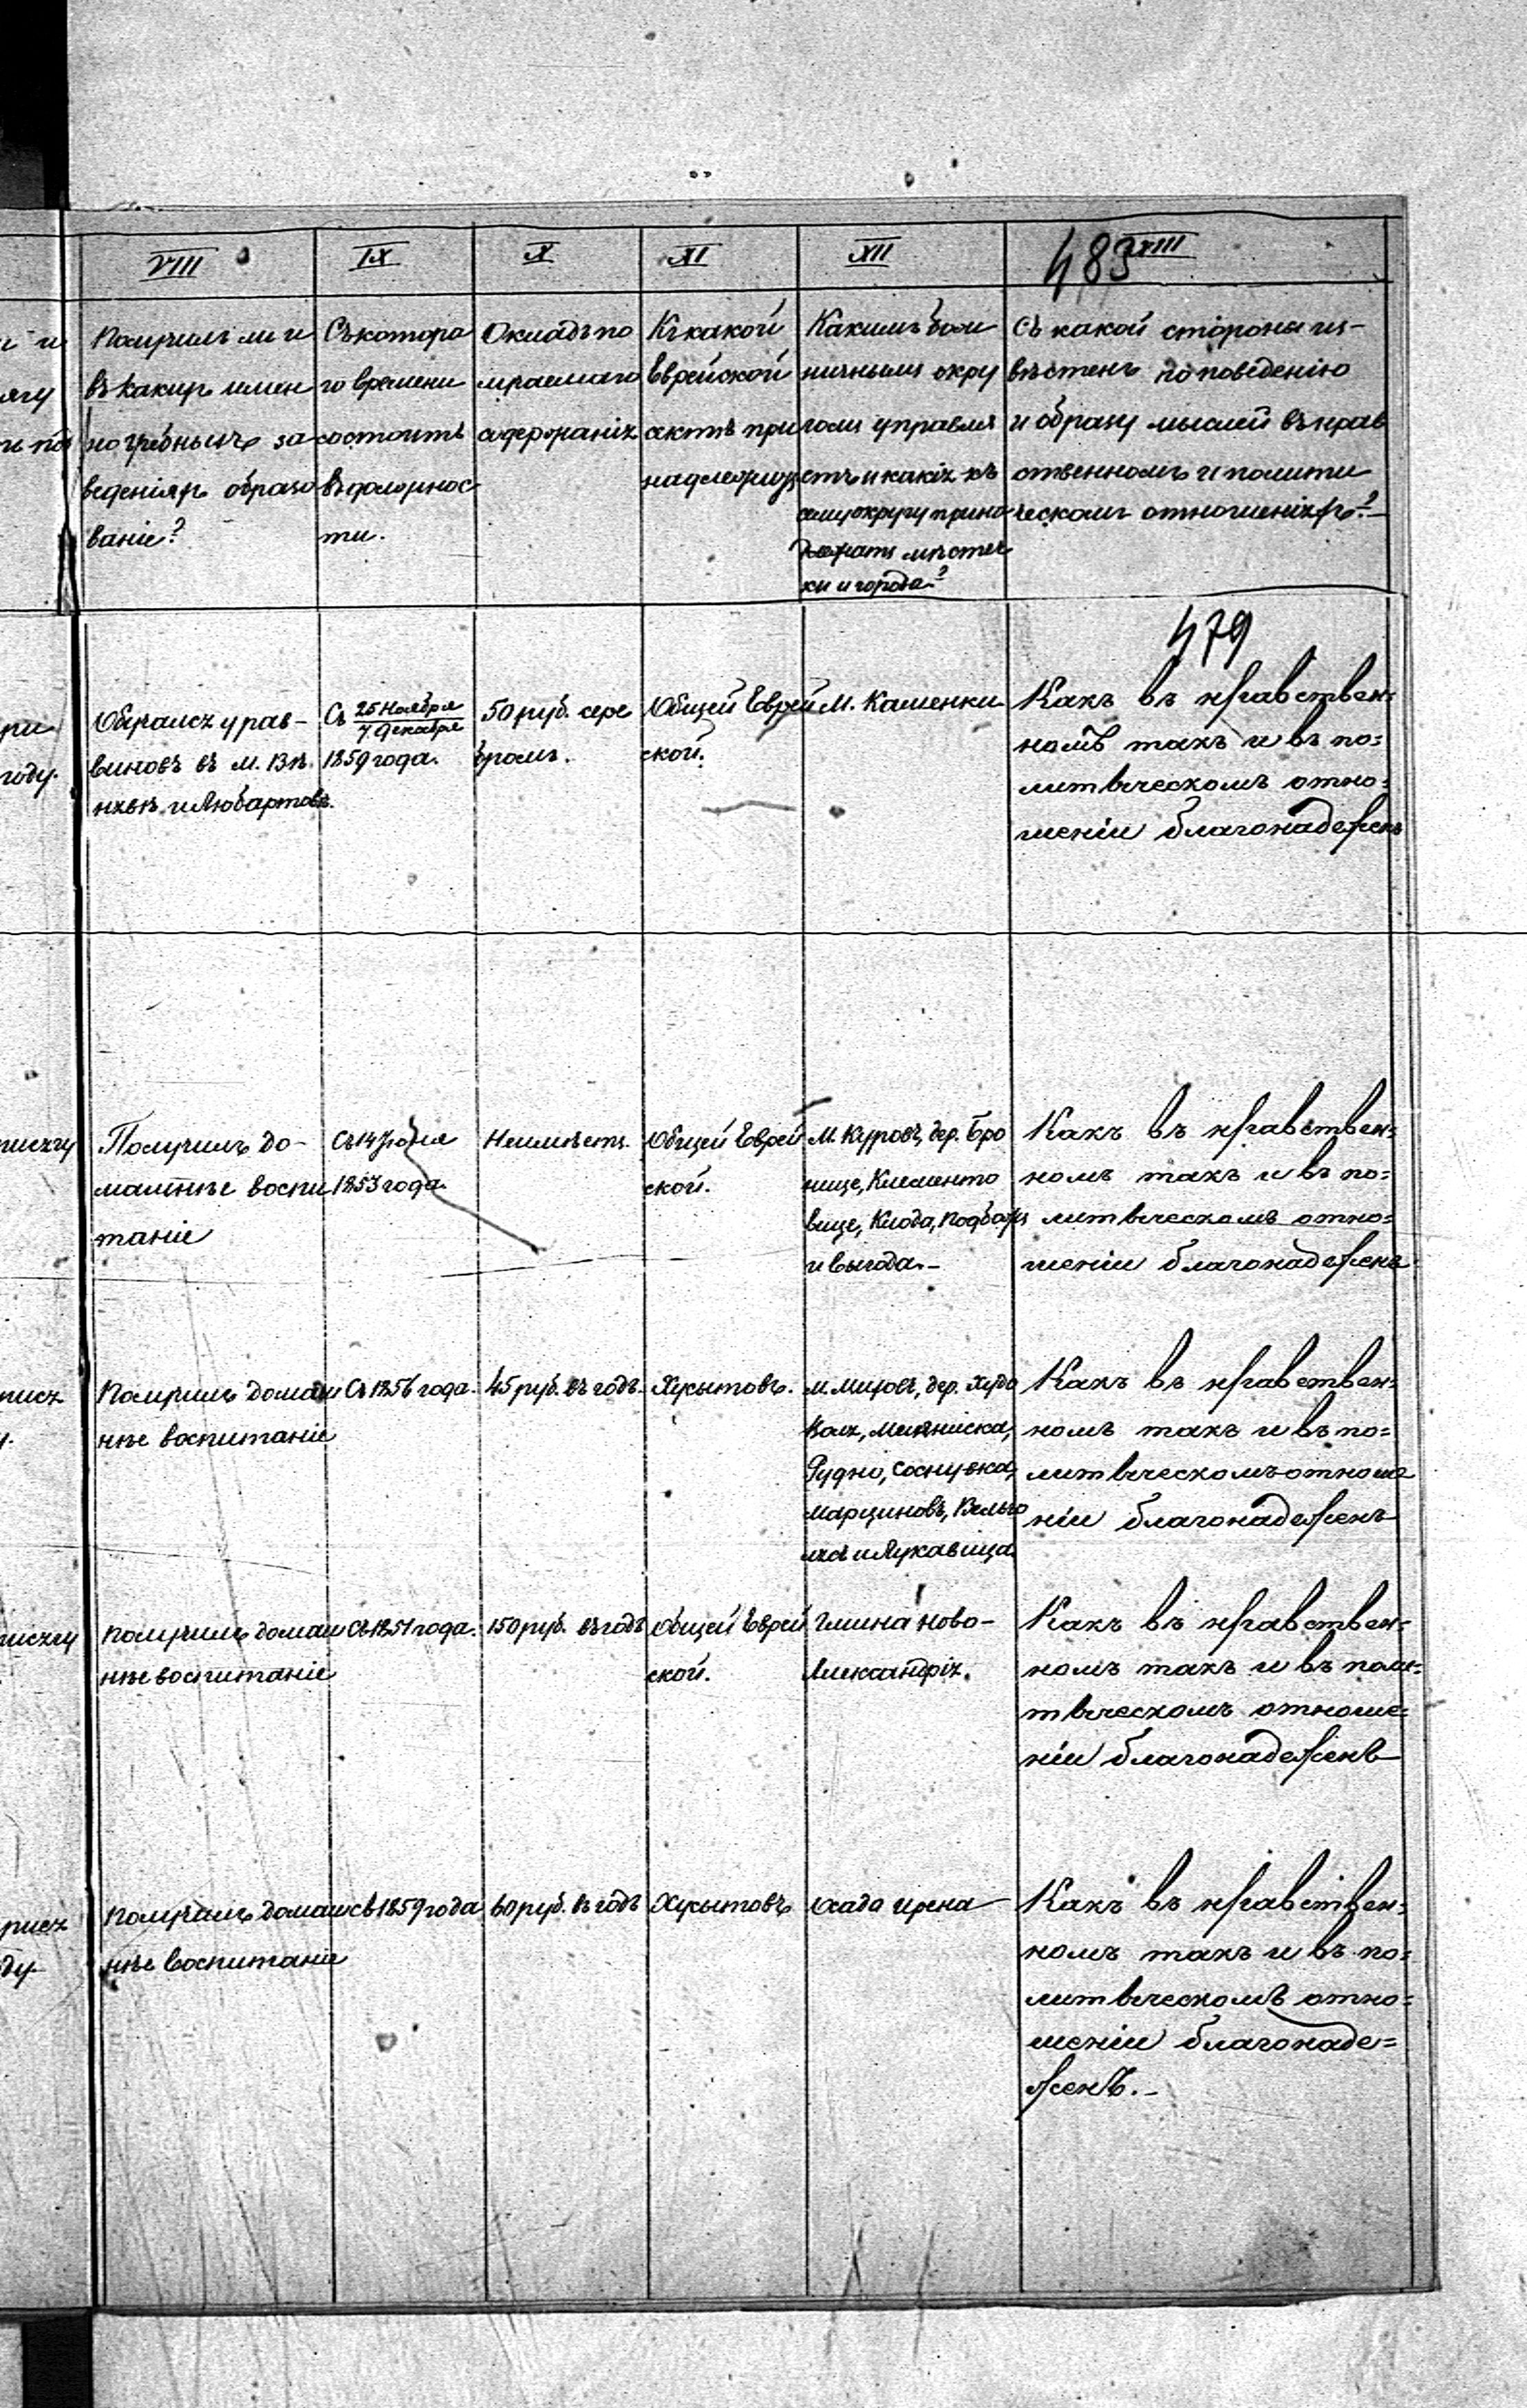 VIII
IX
X
XI
XII
XIII
483
Получилъ ли и
въ какихъ имен
но учебныхъ за
веденіяхъ образо
ваніе?
Съ котора
го времени
состоитъ
въ должнос
ти.
Окладъ по
лучаемаго
содержанія
Къ какой
Еврейской
сектѣ при
надлежитъ
Какимъ бож
ничнымъ окру
гомъ управля
етъ и какія къ
сему округу прина
длежатъ мѣстеч
ки и города?
Съ какой стороны из-
вѣстенъ по поведенію
и образу мыслей въ нрав
ственномъ и полити
ческомъ отношеніяхъ?
479
Обучался у рав-
виновъ въ м. Вѣ
нявѣ и Любартовѣ.
Съ 25 Ноября
7 Декабря
1859 года.
50 руб. сере
бромъ.
Общей Еврей
ской.
М. Каменки
Какъ въ нравствен-
номъ такъ и въ по-
литическомъ отно-
шеніи благонадеженъ
Получилъ до-
машнѣе воспи
таніе
Съ 14 Іюня
1853 года.
Неимѣетъ.
Общей Еврей
ской.
М. Куровъ, дер. Бро
нице, Клементо
вице, Клода, Подбожи
и Выгода.-
Какъ въ нравствен-
номъ такъ и въ по-
литическомъ отно-
шеніи благонадеженъ
Получилъ домаш
нѣе воспитаніе
Съ 1856 года.
45 руб. въ годъ.
Хусытовъ.
м. Мировъ, дер.
Воля,
Рудно, Соснувка,
Марциновъ, Вельго
лясъ и Лукавица.
Какъ въ нравствен-
номъ такъ и въ по-
литическомъ отноше
ніи благонадеженъ
Получилъ домаш
нѣе воспитаніе
Съ 1851 года.
150 руб. въ годъ
Общей Еврей
ской.
Гмина Ново-
Александрія.
Какъ въ нравствен-
номъ такъ и въ поли-
тическомъ отноше-
ніи благонадеженъ
Получилъ домаш
нѣе воспитаніе
съ 1859 года
60 руб. въ годъ
Хусытовъ
Осада Ирена
Какъ въ нравствен-
номъ такъ и въ по-
литическомъ отно-
шеніи благонаде-
женъ.-